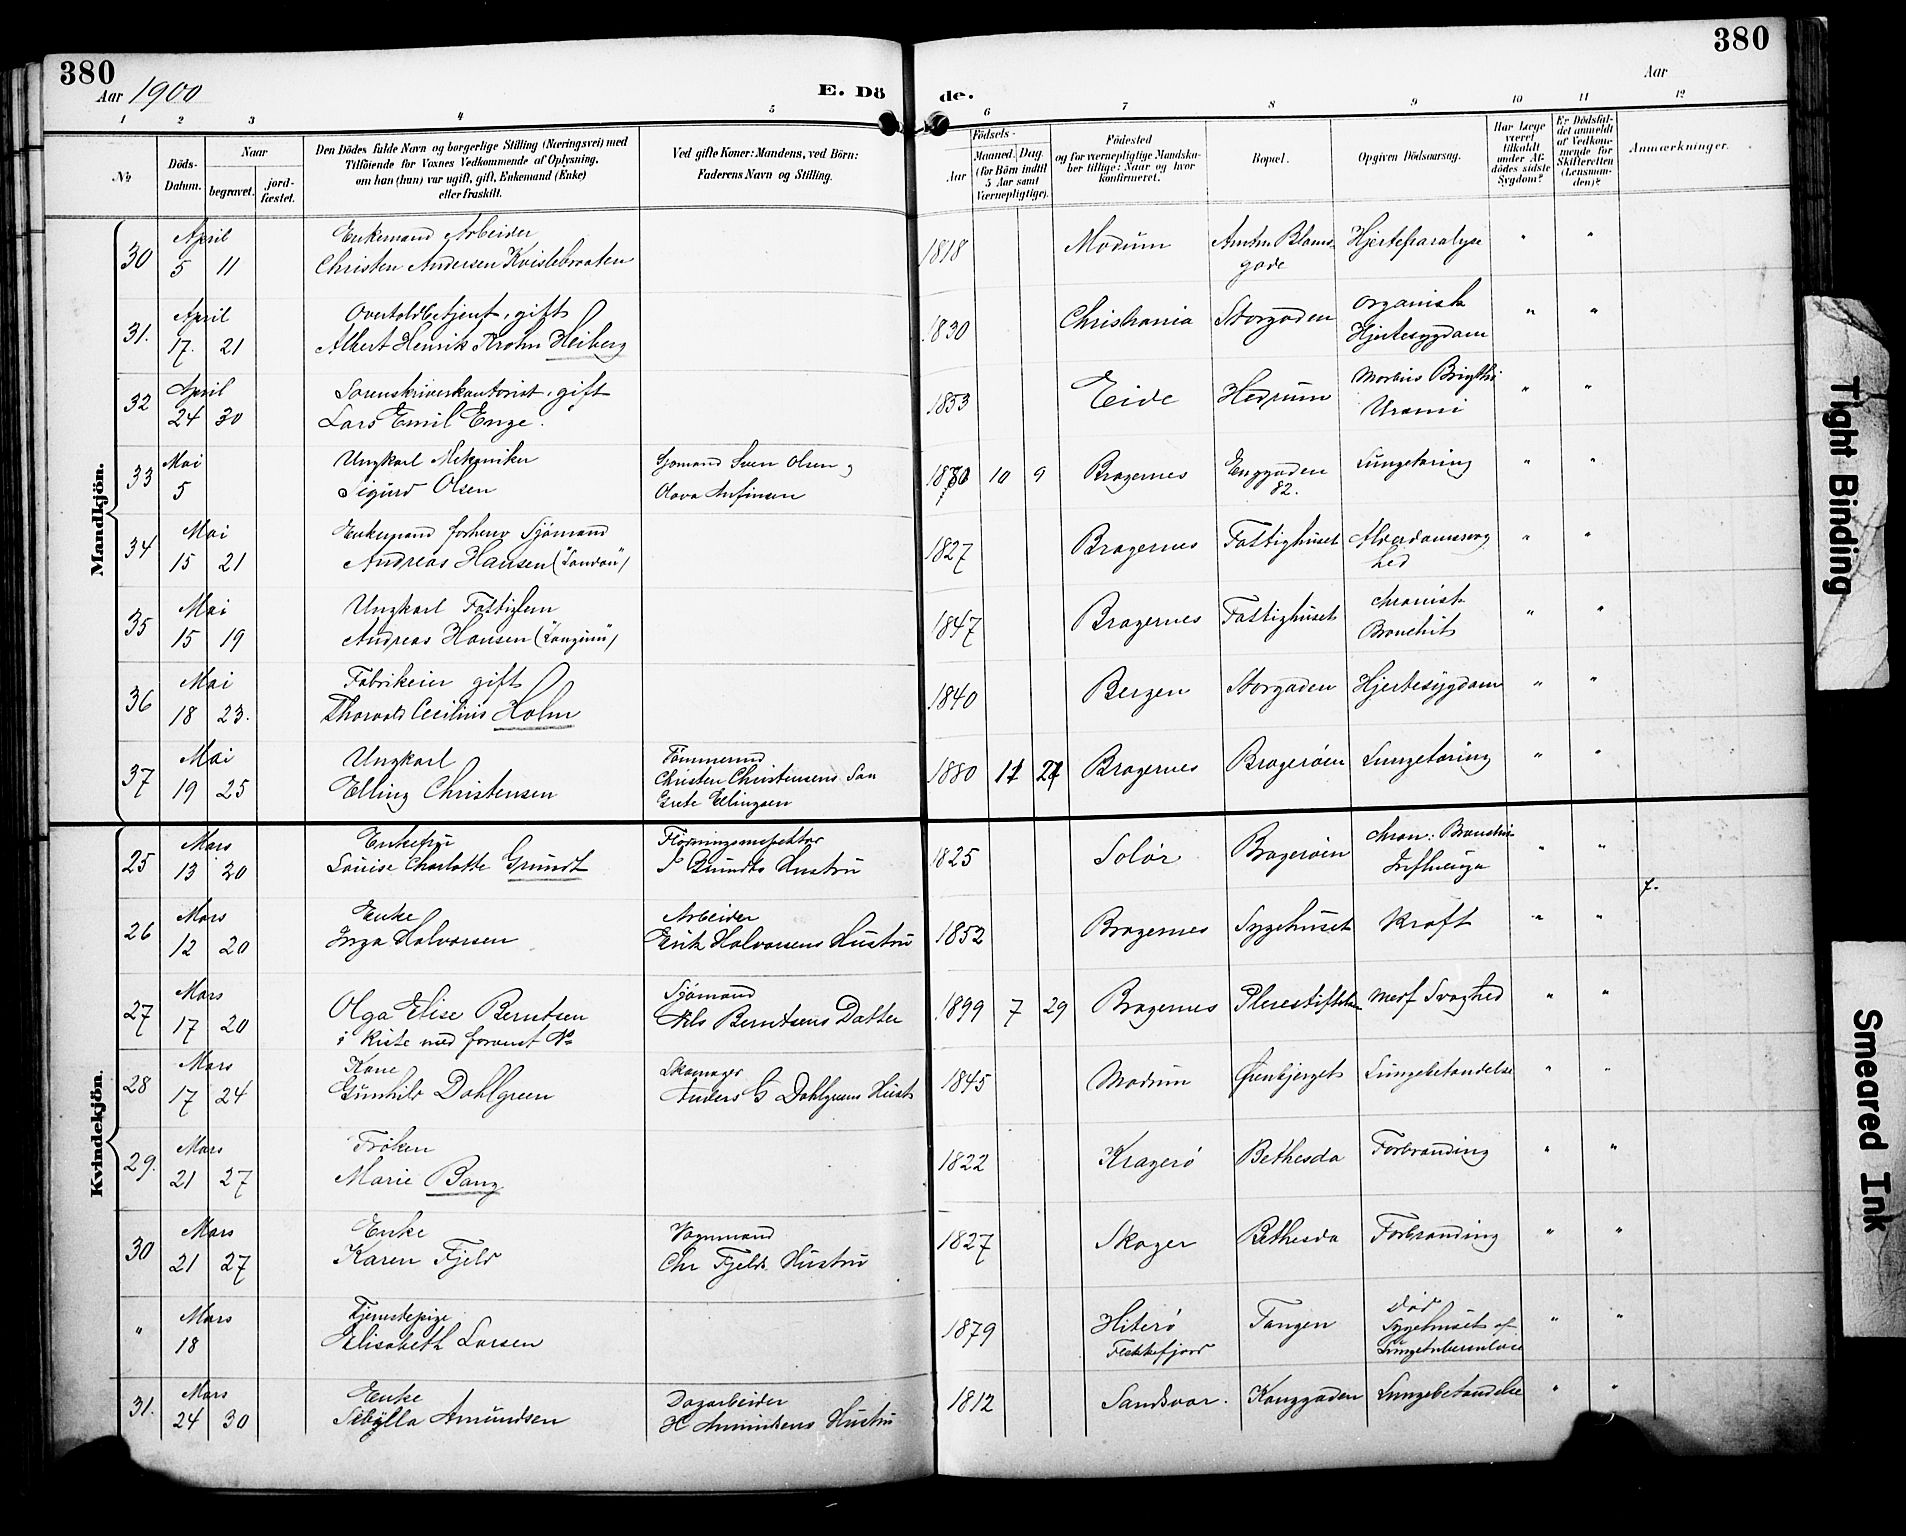 380
380
Aar 1900
E. Dö
de.
Aar
1 2 3 4 5 6 7 8 9 10 11 12
No
Döds-Datum.
Naar
begravet.
jord-fæstet.
Den Dödes fulde Navn og borgerlige Stilling (Næringsvei) med
Tilföiende for Voxnes Vedkommende af Oplysning,
om han (hun) var ugift, gift, Enkemand (Enke)
eller fraskilt.
Ved gifte Koner: Mandens, ved Börn:
Faderens Navn og Stilling.
Födsels-
Aar
Maaned. Dag.
(for Börn indtil
5 Aar samt
Værnepligtige).
Födested
og for værnepligtige Mandska-
ber tillige: Naar og hvor
konfirmeret.
Bopæl.
Opgiven Dödsaarsag.
Har Læge
været
tilkaldt
under Af-
dödes sidste
Sygdom?
Er Dödsfal-
det anmeldt
af Vedkom-
mende for
Skifteretten
(Lensman-
den)?
Anmærkninger.
Mandkjön.
April Enkemand Arbeider
30 5 11 Christen Andersen Kvislebraaten 1818 Modum Amtm Bloms gade Hjerteparalyse " "
April Overtoldbetjent, gift
31. 17. 21 Albert Henrik Krohn Heiberg 1830 Christiania Storgaden organisk Hjertesygdom " "
April Sorenskriverkontorist, gift
32 24 30 Lars Emil Enge. 1853 Eide Hedrum Morbus Brigthi Urami " "
Mai Ungkarl Mekaniker Sjömand Sven Olsen og
33 5 Sigurd Olsen Olava Anfinsen 10 9 Bragernes Enggaden 82. Lungetæring " "
Mai Enkemand forhenv Sjömand
34 15 21 Andreas Hansen 1827 Bragernes Fattighuset Alderdomssvaghed " "
Mai Ungkarl Fattiglem
35 15 19 Andreas Hansen 1847 Bragernes Fattighuset chronisk Bronchit " "
Mai Fabrikeier gift
36 18 23. Thorvald Cecilius Holm 1840 Bergen Storgaden Hjertesygdom " "
Mai Ungkarl Tömmermd
37 19 25 Elling Christensen Christen Christensens Søn Grete Ellingsen 1880 Bragernes Bragerøen Lungetæring " "
Kvindekjön.
Mars Enkefru Fløtningsinspektør
25 13 20 Louise Charlotte Grundt Grundts Hustru 1825 Solør Bragerøen chron: Bronchit Influenza " "
Mars Enke Arbeider
26 12 20 Inga Halvorsen Erik Halvorsens Hustru 1852 Bragernes Sygehuset Kræft " "
Mars Sjømand
27 17 20 Olga Elise Berntsen Nils Berntsens Datter 1899 7 29 Bragernes Pleiestiftelsen medf Svaghed " "
i Kiste med forrenst No
Mars Kone Skomager
28 17 24 Gunhild Dahlgreen Anders G Dahlgrens Hustr 1845 Modum Ørenbjerget Lungebetændelse " "
Mars Frøken
29. 21 27 Marie Bang 1822 Kragerø Bethesda Forbrænding " "
Mars Enke Vognmand
30 21 27 Karen Fjeld Chr Fjelds Hustru 1827 Skoger Bethesda Forbrænding " "
Mars Tjenestepige
" 18 Elisabeth Larsen 1879 Hiterø Flekkefjord Tangen død Sygehuset af Lungetuberculose " "
Mars Enke Dagarbeider
31. 24 30 Sibylla Amundsen H Amundsens Hustru 1812 Sandsvær. Konggaden Lungebetændelse " "
Tight Binding
Smeared Ink